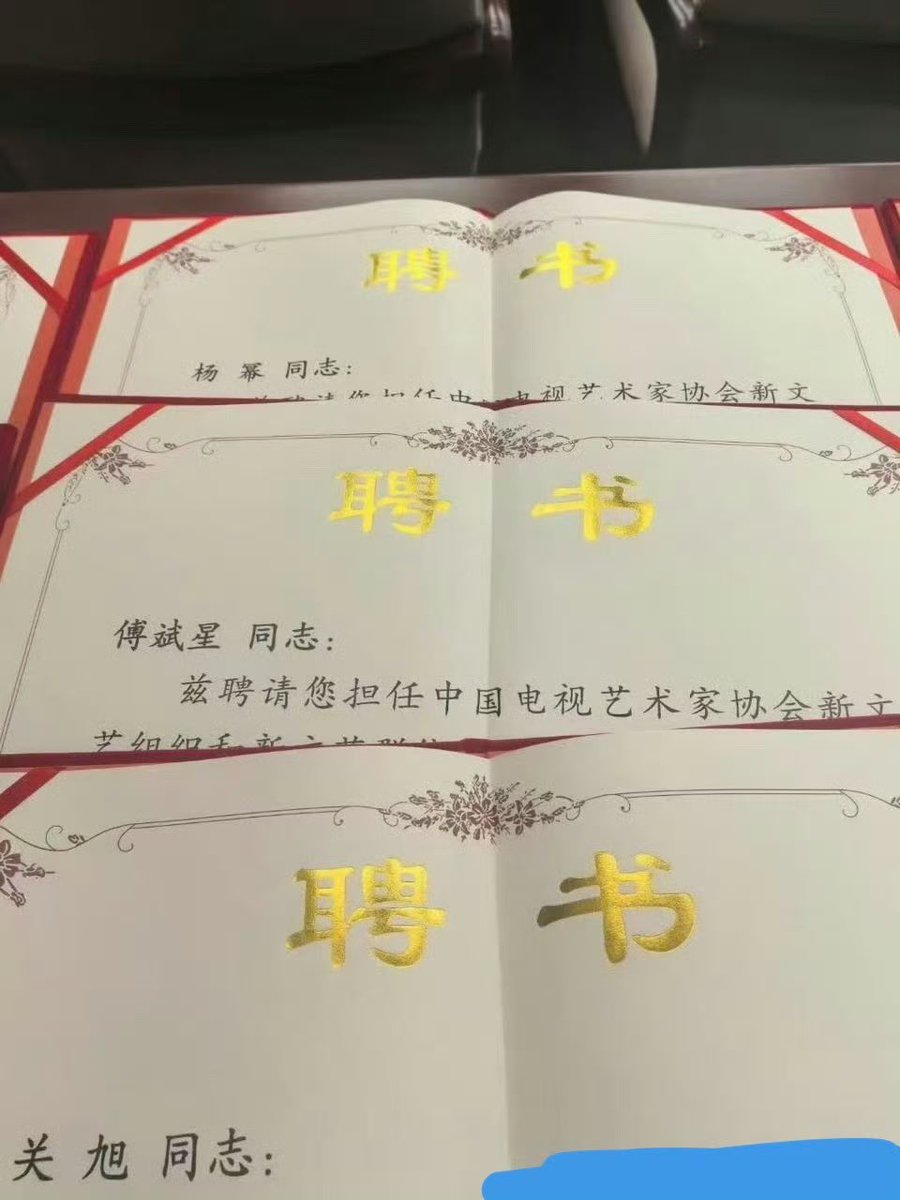 聘书
杨幂 同志：
兹聘请您担任中国电视艺术家协会新文
聘书
傅斌星 同志：
兹聘请您担任中国电视艺术家协会新文
艺组织和新文艺群体
聘书
关旭 同志：